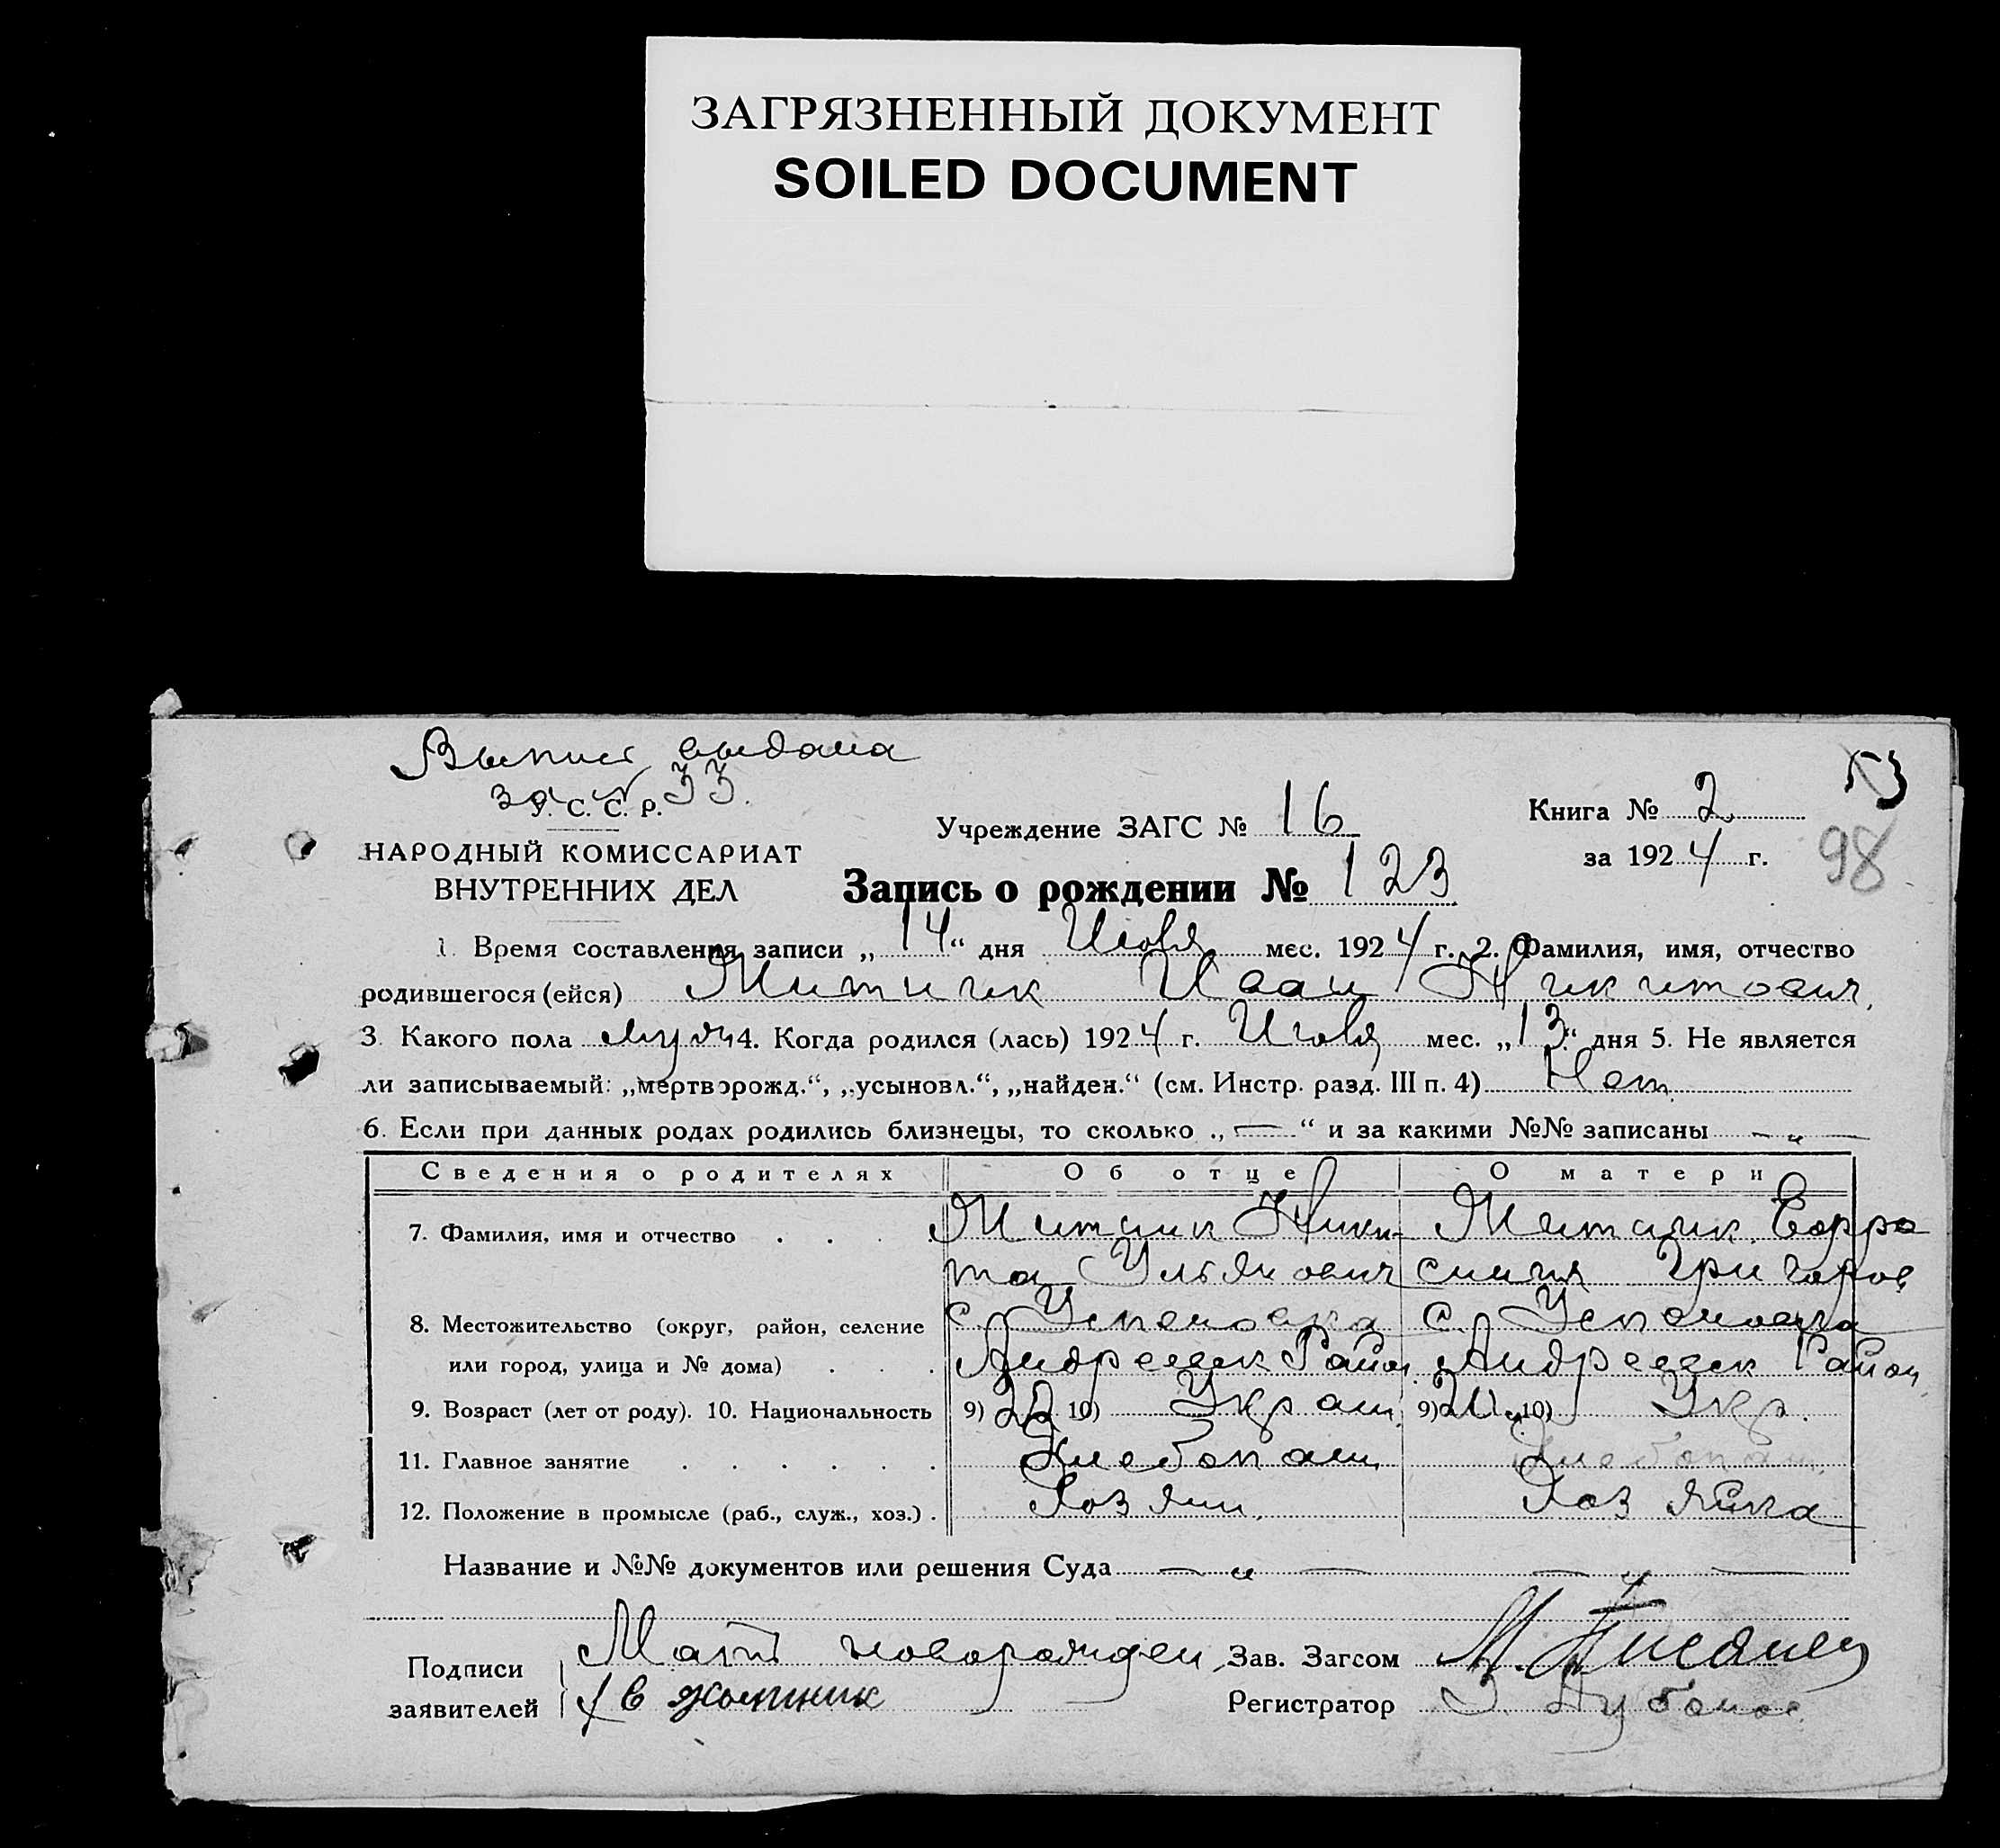 ЗАГРЯЗНЕННЫЙ ДОКУМЕНТ
SOILED DOCUMENT
Выпись выдана
за № 33.
У. С. С. Р.
НАРОДНЫЙ КОМИССАРИАТ
ВНУТРЕННИХ ДЕЛ
Учреждение ЗАГС № 16
Книга № 2
за 1924 г.
98
Запись о рождении № 123
1. Время составления записи „14“ дня Июля мес. 1924 г. 2. Фамилия, имя, отчество
родившегося (ейся) Митчик Иван Никитович.
3. Какого пола муж 4. Когда родился (лась) 1924 г. Июля мес. „13“ дня 5. Не является
ли записываемый: „мертворожд.“, „усыновл.“, „найден.“ (см. Инстр. разд. III п. 4) Нет
6. Если при данных родах родились близнецы, то сколько „—“ и за какими №№ записаны — „ —
Сведения о родителях Об отце О матери
7. Фамилия, имя и отчество . . . . Митчик Ники- Митчик Евфро
та Ульянович синия Григоров
8. Местожительство (округ, район, селение с. Успеновка с. Успеновка
или город, улица и № дома) . . . Андреевск Район Андреевск Район
9. Возраст (лет от роду). 10. Национальность 9) 10) Украин. 9) 10) Укр.
11. Главное занятие . . . . . . Хлебопаш. Хлебопаш.
12. Положение в промысле (раб., служ., хоз.) . Хозяин. Хозяйка
Название и №№ документов или решения Суда — „ — — „ —
Подписи заявителей
Мать новорожден.
Зав. Загсом М.
Регистратор